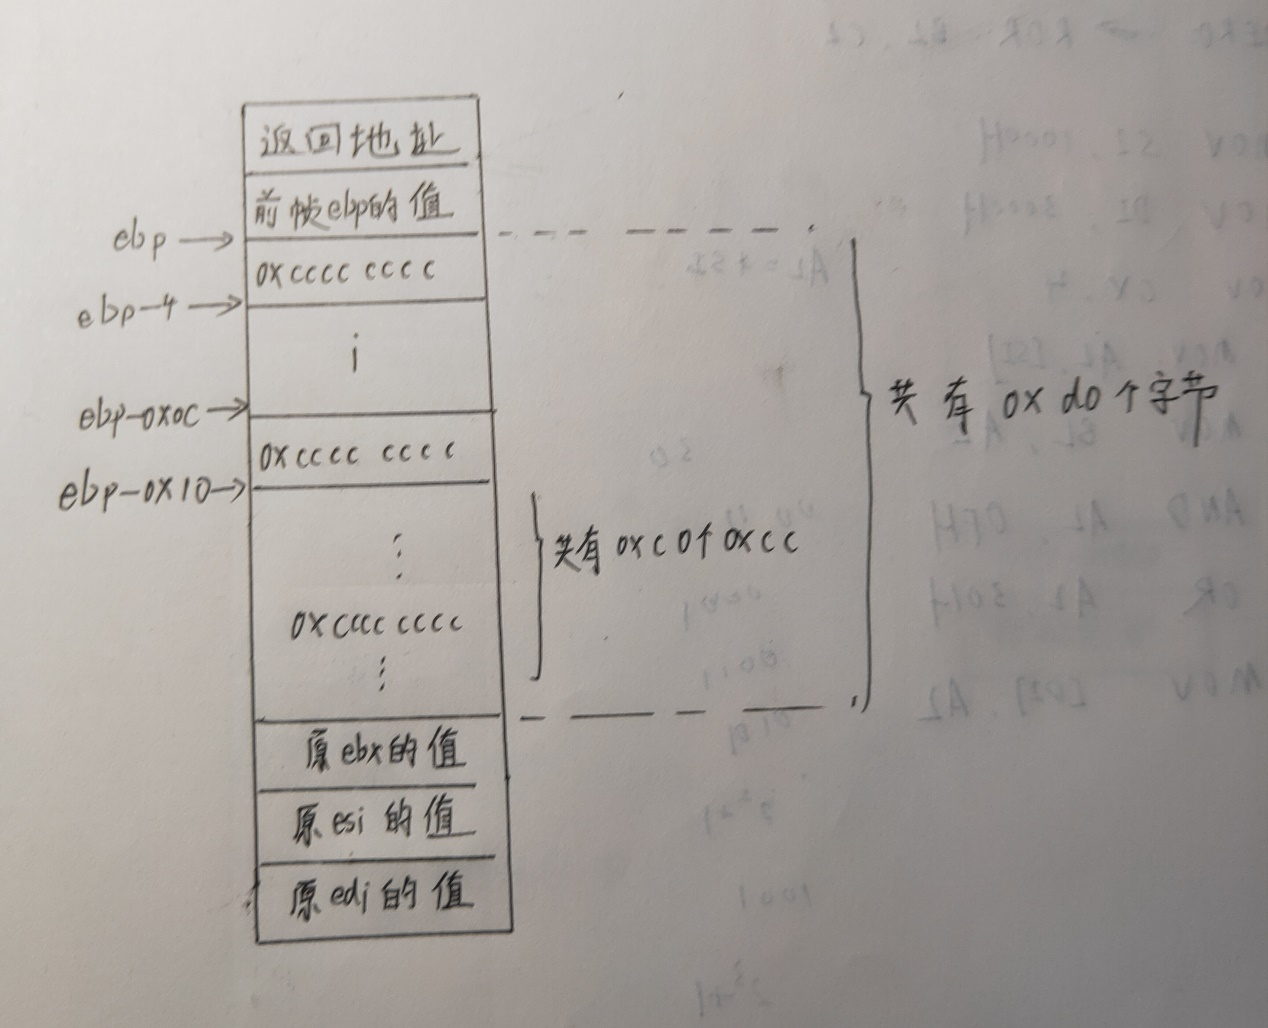 返回地址
前帧ebp的值
ebp
0xcccc cccc
ebp-4
i
ebp-0x0c
0xcccc cccc
ebp-0x10
共有 0x d0 个字节
共有 0xc0个 0xcc
0xcccc cccc
原ebx的值
原esi的值
原edi的值